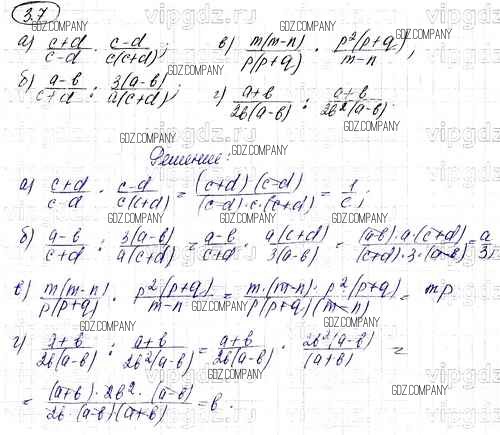 3.7
а) (c+d)/(c-d) · (c-d)/(c(c+d)); в) (m(m-n))/(p(p+q)) · (p²(p+q))/(m-n);
б) (a-b)/(c+d) : (3(a-b))/(a(c+d)); г) (a+b)/(2b(a-b)) : (a+b)/(2b²(a-b)).
Решение:
а) (c+d)/(c-d) · (c-d)/(c(c+d)) = ((c+d)·(c-d))/((c-d)·c·(c+d)) = 1/c;
б) (a-b)/(c+d) : (3(a-b))/(a(c+d)) = (a-b)/(c+d) · (a(c+d))/(3(a-b)) = ((a-b)·a·(c+d))/((c+d)·3·(a-b)) = a/3;
в) (m(m-n))/(p(p+q)) · (p²(p+q))/(m-n) = (m·(m-n)·p²(p+q))/(p(p+q)(m-n)) = mp
г) (a+b)/(2b(a-b)) : (a+b)/(2b²(a-b)) = (a+b)/(2b(a-b)) · (2b²(a-b))/((a+b)) =
= ((a+b)·2b²·(a-b))/(2b·(a-b)(a+b)) = b.
GDZ.COMPANY
vipgdz.ru